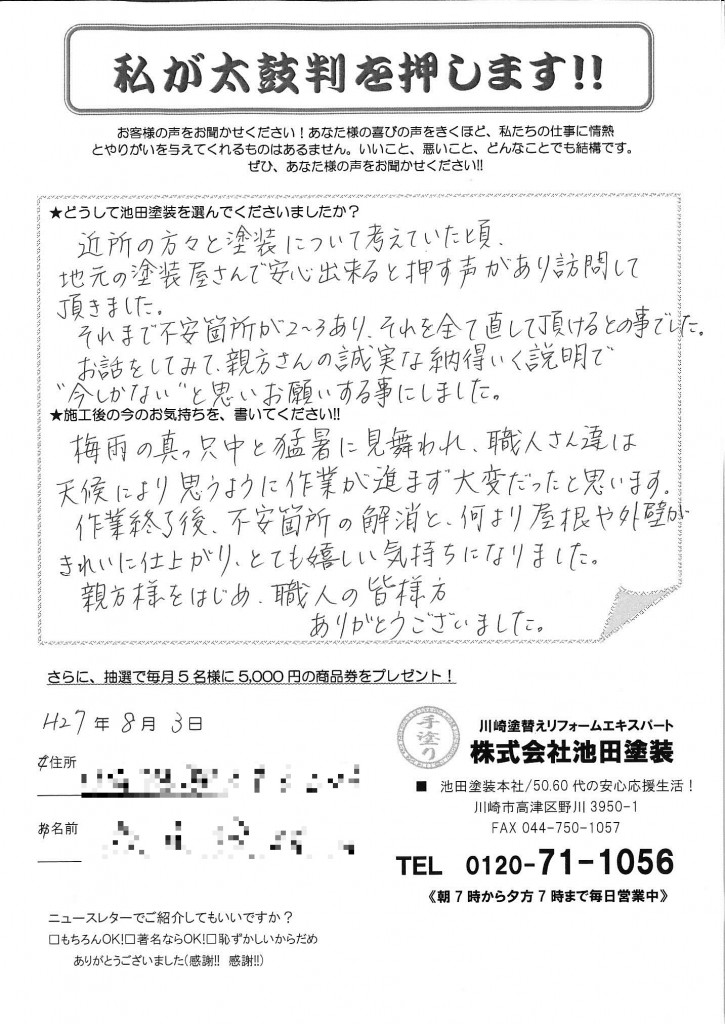 私が太鼓判を押します!!
お客様の声をお聞かせください！あなた様の喜びの声をきくほど、私たちの仕事に情熱
とやりがいを与えてくれるものはあるません。いいこと、悪いこと、どんなことでも結構です。
ぜひ、あなた様の声をお聞かせください!!
★どうして池田塗装を選んでくださいましたか？
近所の方々と塗装について考えていた頃、
地元の塗装屋さんで安心出来ると押す声があり訪問して
頂きました。
それまで不安箇所が2~3あり、それを全て直して頂けるとの事でした。
お話をしてみて、親方さんの誠実な納得いく説明で
"今しかない"と思いお願いする事にしました。
★施工後の今のお気持ちを、書いてください!!
梅雨の真っ只中と猛暑に見舞われ、職人さん達は
天候により思うように作業が進まず大変だったと思います。
作業終了後、不安箇所の解消と、何より屋根や外壁が
きれいに仕上がり、とても嬉しい気持ちになりました。
親方様をはじめ、職人の皆様方
ありがとうございました。
さらに、抽選で毎月5名様に5,000円の商品券をプレゼント！
H27年8月3日
ご住所
お名前
ニュースレターでご紹介してもいいですか？
□もちろんOK!□著名ならOK!□恥ずかしいからだめ
ありがとうございました(感謝!! 感謝!!)
手塗り
川崎塗替えリフォームエキスパート
株式会社池田塗装
■ 池田塗装本社/50.60代の安心応援生活！
川崎市高津区野川3950-1
FAX 044-750-1057
TEL 0120-71-1056
《朝7時から夕方7時まで毎日営業中》